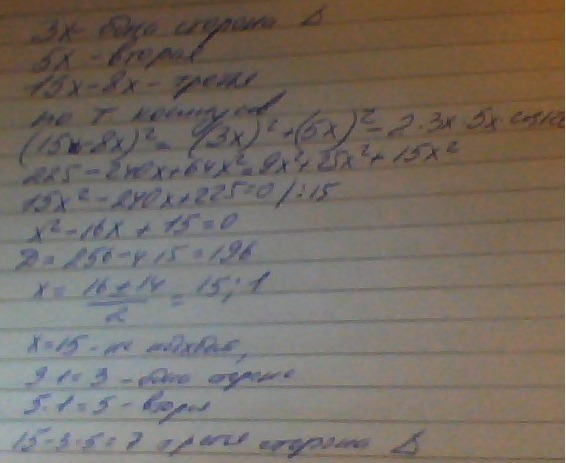 3x - одна сторона Δ
5x - вторая
15x-8x - третья
по т косинусов
(15x-8x)² = (3x)² + (5x)² - 2·3x·5x cos
225 - 240x + 64x² = 9x² + 25x² + 15x²
15x² - 240x + 225 = 0 /:15
x² - 16x + 15 = 0
D = 256 - 4·15 = 196
x = 16±14/2 = 15; 1
x = 15 - не
3·1 = 3 - одна
5·1 = 5 - вторая
15-3-5=7 третья сторона Δ